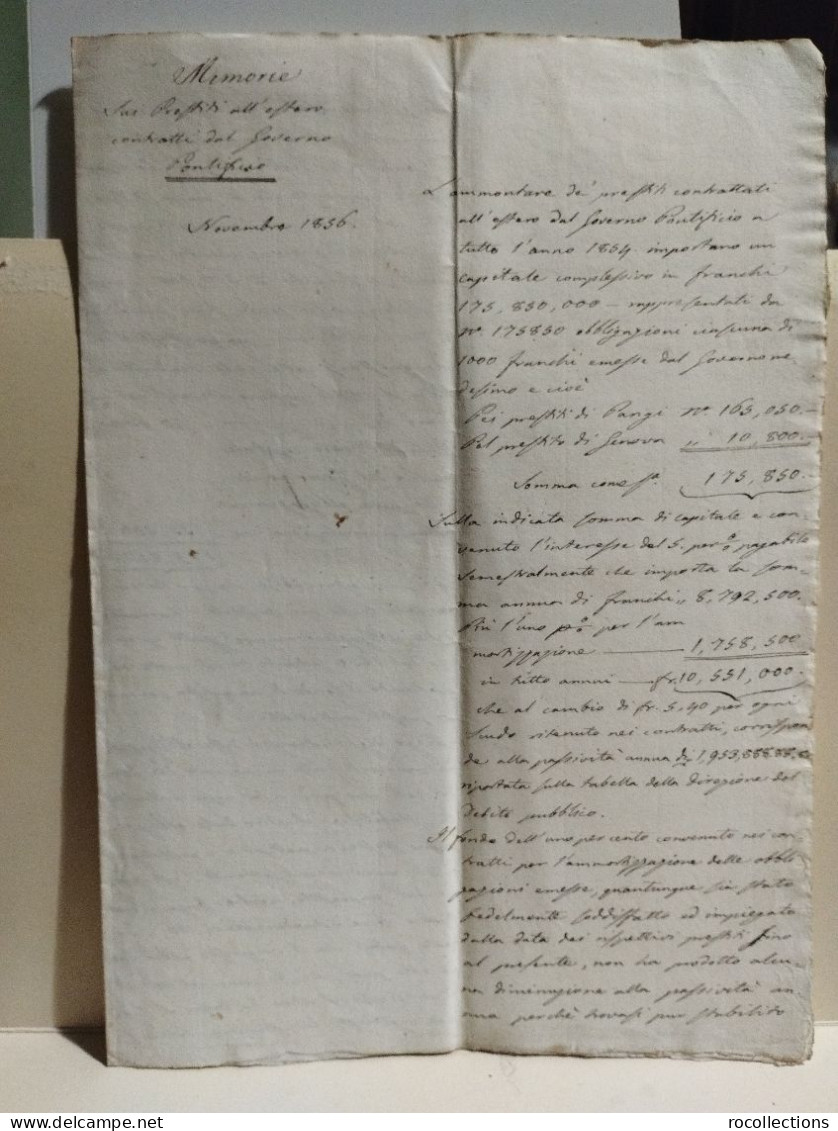 Memorie
Sui Prestiti all'estero
contratti dal Governo
Pontificio
Novembre 1856.
L'ammontare de' prestiti contrattati
all'estero dal Governo Pontificio a
tutto l'anno 1854 importano un
capitale complessivo in franchi
175,850,000 – rappresentati da
n.º 175850 obbligazioni ciascuna di
1000 franchi emesse dal Governo me
desimo e cioè
Pei prestiti di Parigi n.º 165,050.–
Pel prestito di Genova „ 10,800.–
Somma come s.ª 175,850.–
Sulla indicata somma di capitale e con
venuto l'interesse del 5. per % pagabile
Semestralmente che importa la som-
ma annua di franchi „ 8,792,500.
Più l'uno p% per l'am
mortizzazione — 1,758,500
in tutto annui — fr. 10,551,000.
che al cambio di fr. 5.40 per ogni
Scudo ritenuto nei contratti, corrispon
de alla passività annua di 1,953,888.88.
riportata sulla tabella della direzione del
debito pubblico.
Il fondo dell'uno per cento convenuto nei con
tratti per l'ammortizzazione delle obbli
gazioni emesse, quantunque sia stato
fedelmente soddisfatto ed impiegato
dalla data dei rispettivi prestiti fino
al presente, non ha prodotto alcu-
na diminuzione alla passività an-
nua perchè trovasi pur stabilito
rocollections